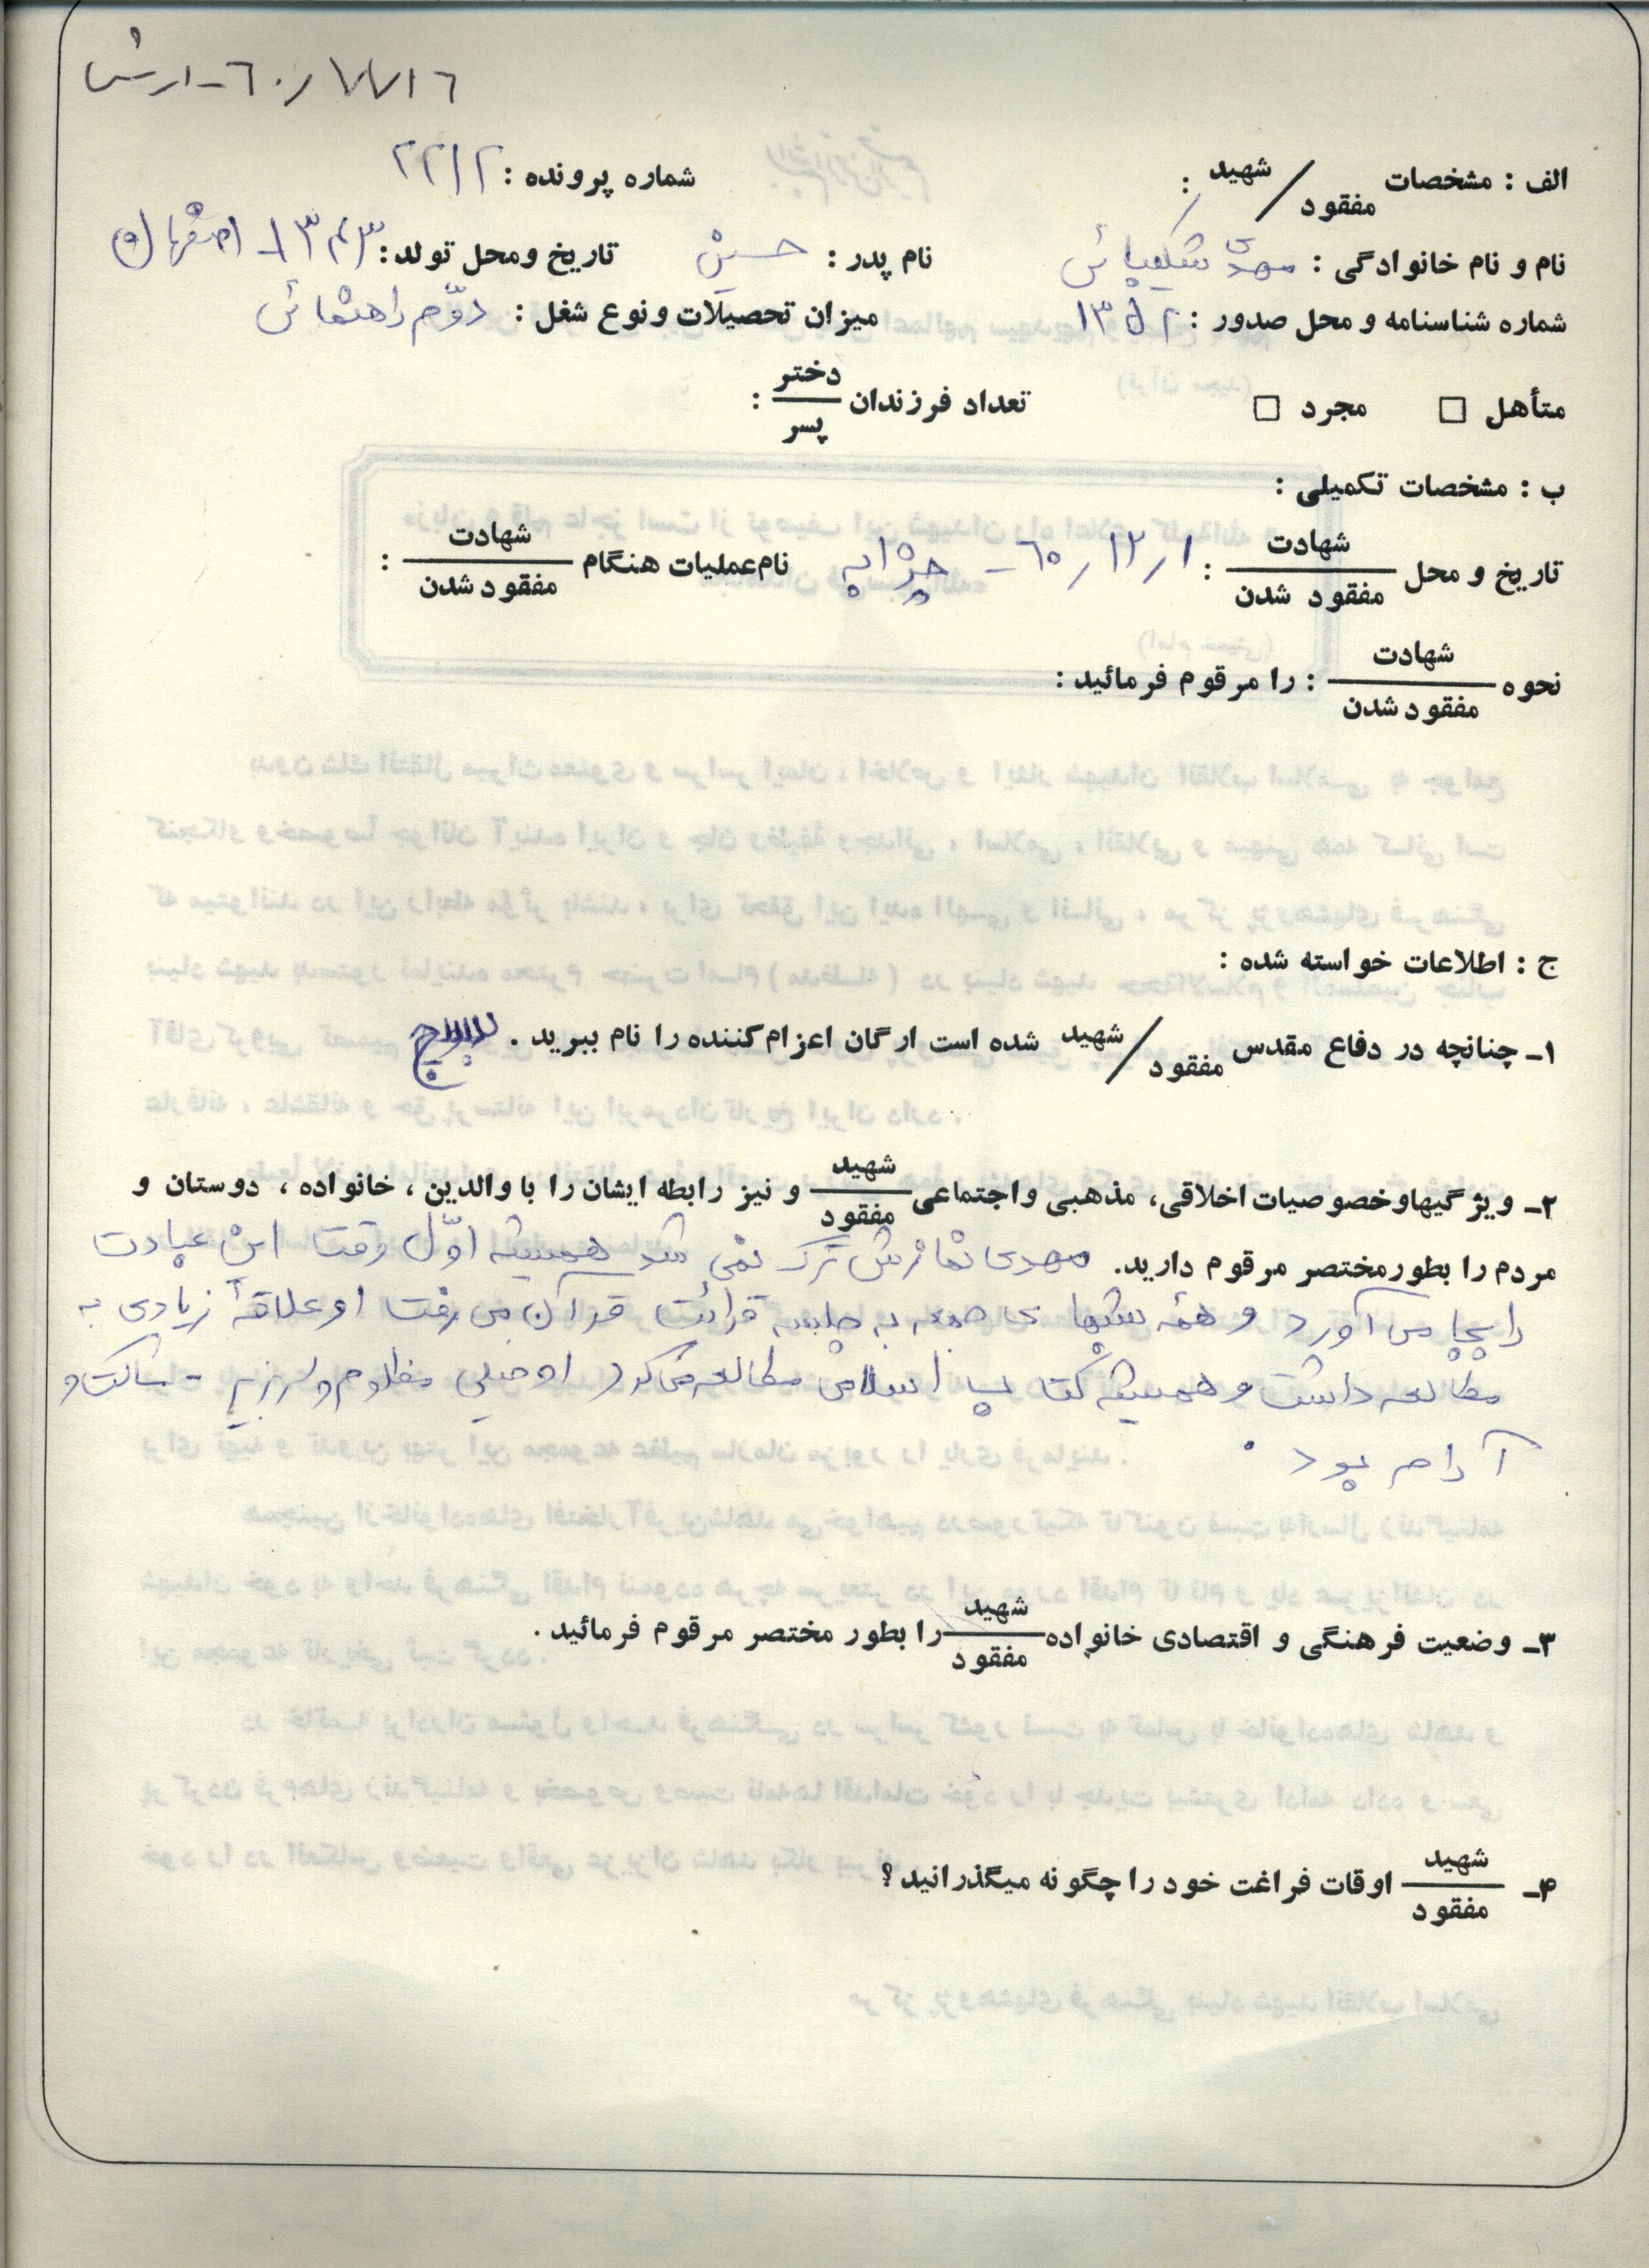 الف : مشخصات شهید / مفقود : شماره پرونده : ۲۲۱۲
نام و نام خانوادگی : مهدی شکیبائی نام پدر : حسین تاریخ ومحل تولد : اصفهان
شماره شناسنامه و محل صدور : میزان تحصیلات و نوع شغل : دوّم راهنمائی
متأهل □ مجرد □ تعداد فرزندان دختر / پسر :
ب : مشخصات تکمیلی :
تاریخ و محل شهادت / مفقود شدن : ۶۰/۱۲/۱ - چزابه نام عملیات هنگام شهادت / مفقود شدن :
نحوه شهادت / مفقود شدن : را مرقوم فرمائید :
ج : اطلاعات خواسته شده :
۱ـ چنانچه در دفاع مقدس شهید / مفقود شده است ارگان اعزام کننده را نام ببرید . بسیج
۲ـ ویژگیهاوخصوصیات اخلاقی، مذهبی واجتماعی شهید / مفقود و نیز رابطه ایشان را با والدین ، خانواده ، دوستان و
مردم را بطورمختصر مرقوم دارید. مهدی نمازش ترک نمی شد همیشه اوّل وقت این عبادت
را بجا می آورد و همه شبهای جمعه به جلسه قرائت قرآن می رفت او علاقهٔ زیادی به
مطالعه داشت و همیشه کتاب اسلامی مطالعه می کرد او خیلی مظلوم و سربزیر - ساکت و
آرام بود .
۳ـ وضعیت فرهنگی و اقتصادی خانواده شهید / مفقود را بطور مختصر مرقوم فرمائید .
۴ـ شهید / مفقود اوقات فراغت خود را چگونه میگذرانید ؟